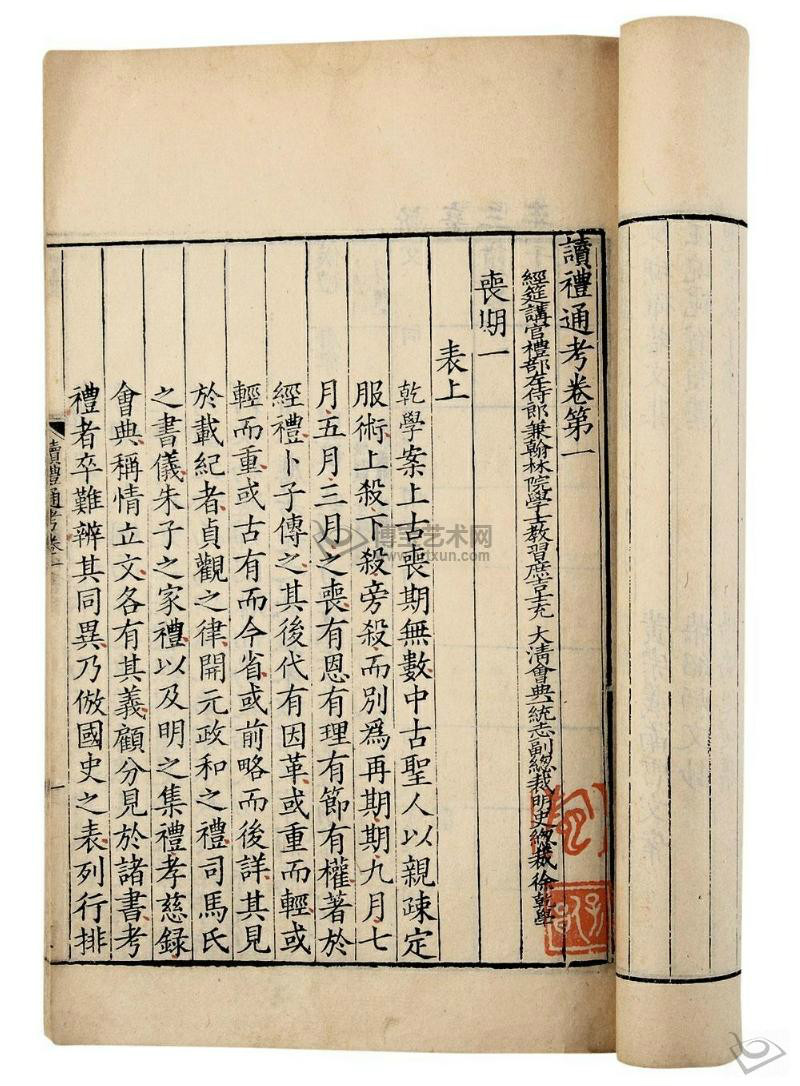 讀禮通考卷第一
經筵講官禮部左侍郎兼翰林院學士教習庶吉士充 大清會典一統志副總裁明史總裁徐乾學
喪期一
表上
乾學案上古喪期無數中古聖人以親疎定
服術上殺下殺旁殺而別爲再期期九月七
月五月三月之喪有恩有理有節有權著於
經禮卜子傳之其後代有因革或重而輕或
輕而重或古有而今省或前略而後詳其見
於載紀者貞觀之律開元政和之禮司馬氏
之書儀朱子之家禮以及明之集禮孝慈錄
會典稱情立文各有其義顧分見於諸書考
禮者卒難辨其同異乃倣國史之表列行排
讀禮通考卷一
一
博宝艺术网
artxun.com